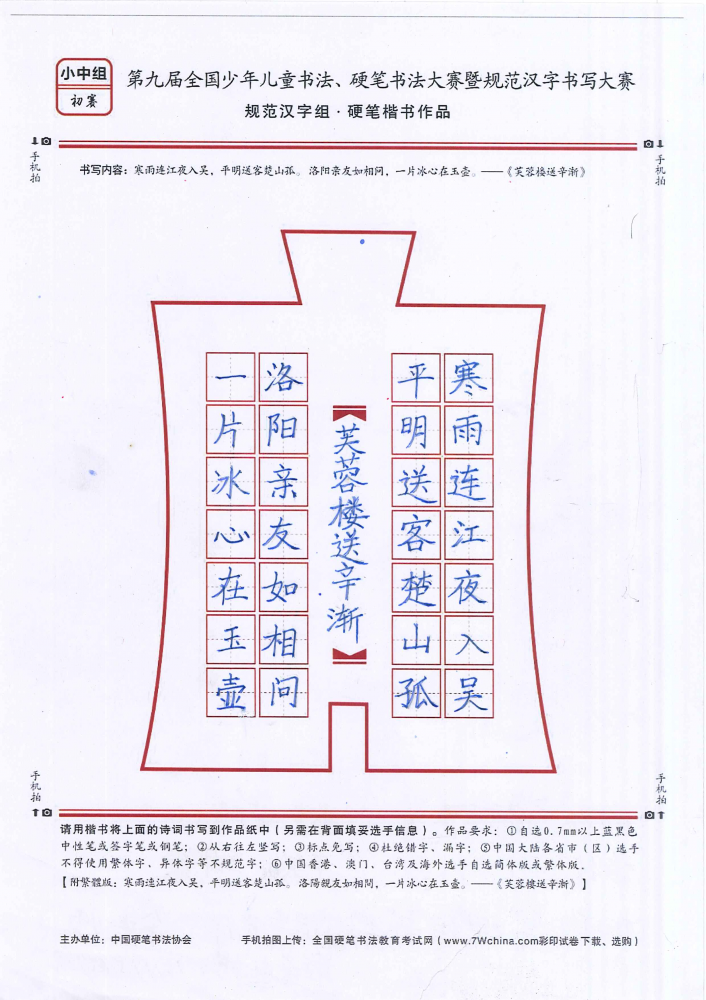 小中组
初赛
第九届全国少年儿童书法、硬笔书法大赛暨规范汉字书写大赛
规范汉字组·硬笔楷书作品
手机拍
手机拍
书写内容：寒雨连江夜入吴，平明送客楚山孤。洛阳亲友如相问，一片冰心在玉壶。——《芙蓉楼送辛渐》
寒雨连江夜入吴
平明送客楚山孤
芙蓉楼送辛渐
洛阳亲友如相问
一片冰心在玉壶
手机拍
手机拍
请用楷书将上面的诗词书写到作品纸中（另需在背面填妥选手信息）。作品要求：①自选0.7mm以上蓝黑色
中性笔或签字笔或钢笔；②从右往左竖写；③标点免写；④杜绝错字、漏字；⑤中国大陆各省市（区）选手
不得使用繁体字、异体字等不规范字；⑥中国香港、澳门、台湾及海外选手自选简体版或繁体版.
【附繁體版：寒雨連江夜入吴，平明送客楚山孤。洛陽親友如相問，一片冰心在玉壶。——《芙蓉樓送辛漸》】
主办单位：中国硬笔书法协会
手机拍图上传：全国硬笔书法教育考试网（www.7Wchina.com彩印试卷下载、选购）